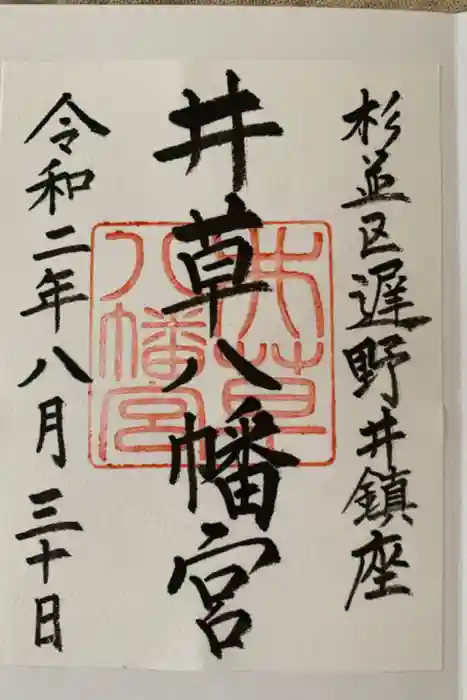 杉並区遅野井鎮座
井草八幡宮
令和二年八月三十日
井草
八幡宮